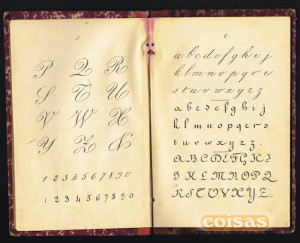 P Q R
S T U
V W X
Y Z N
1 2 3 4 5 6 7 8 9 0
1 2 3 4 5 6 7 8 9 0
a b c d e f g h i j
k l m n o p q r s
s t u v w x y z
a b c d e f g h i j
k l m n o p q r s
t u v w x y z
A B C D E F G H I
J K L M N O P Q
R S T U V X Y Z
coisas